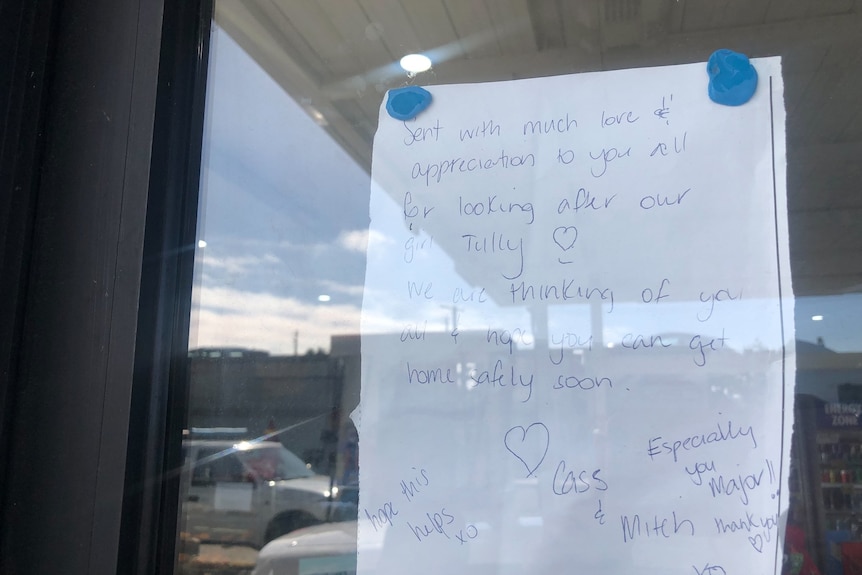 Sent with much love &
appreciation to you all
for looking after our
girl Tully ♡
We are thinking of you
all & hope you can get
home safely soon.
♡ Cass
& Mitch
Especially
you
Major!!
thankyou
♡
xo
hope this
helps xo
ENERGY
ZONE